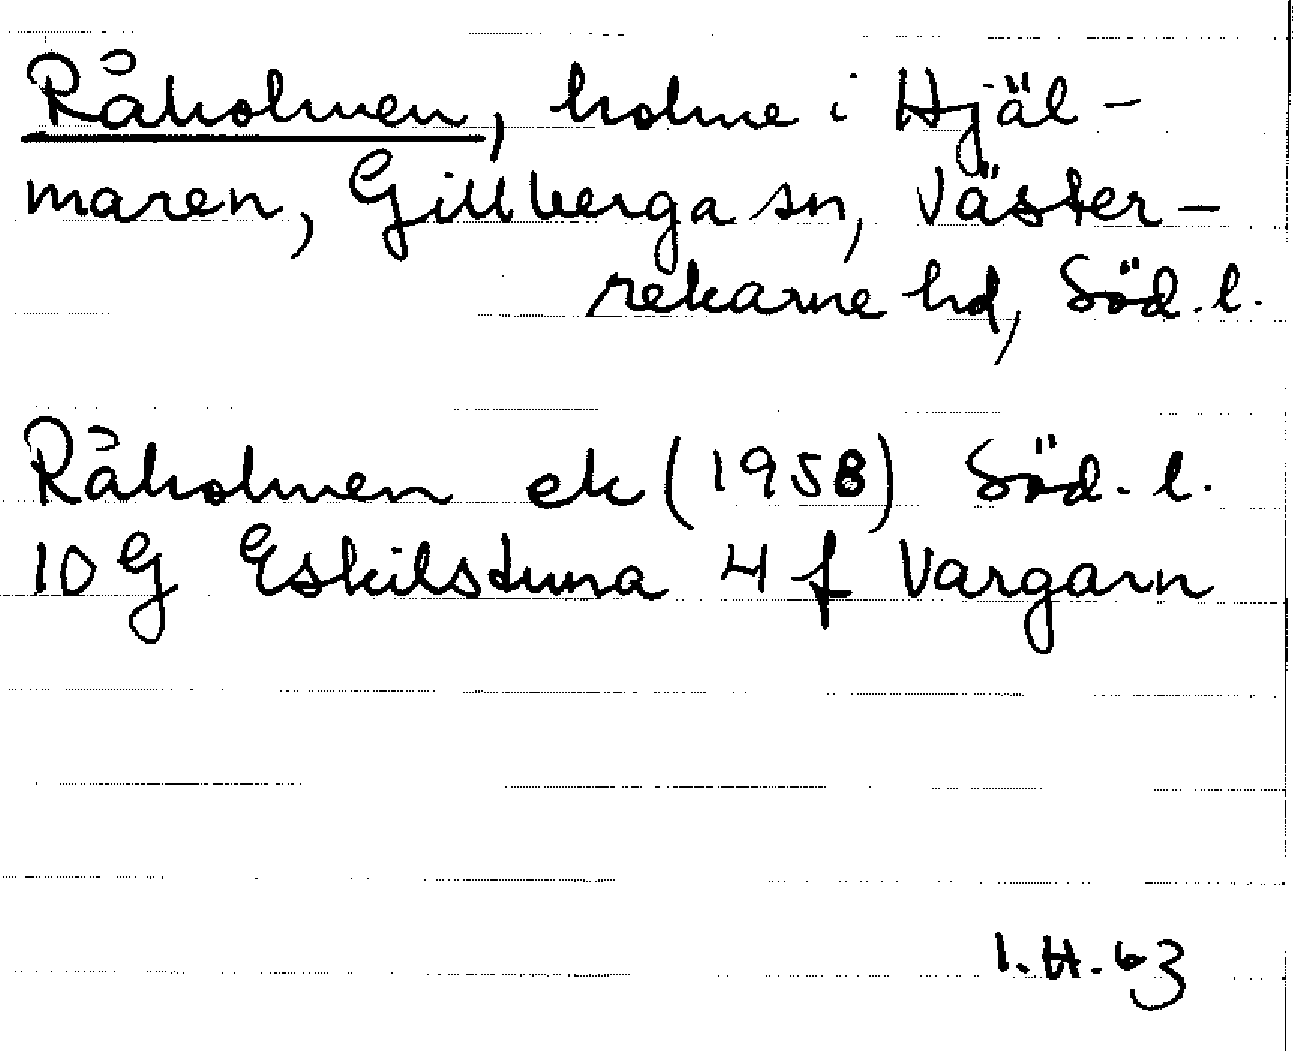 Råholmen, holme i Hjäl-
maren, Gillberga sn, Väster-
rekarne hd, Söd. l.
Råholmen ek (1958) Söd. l.
10G Eskilstuna 4 f Vargarn
I.H. 63